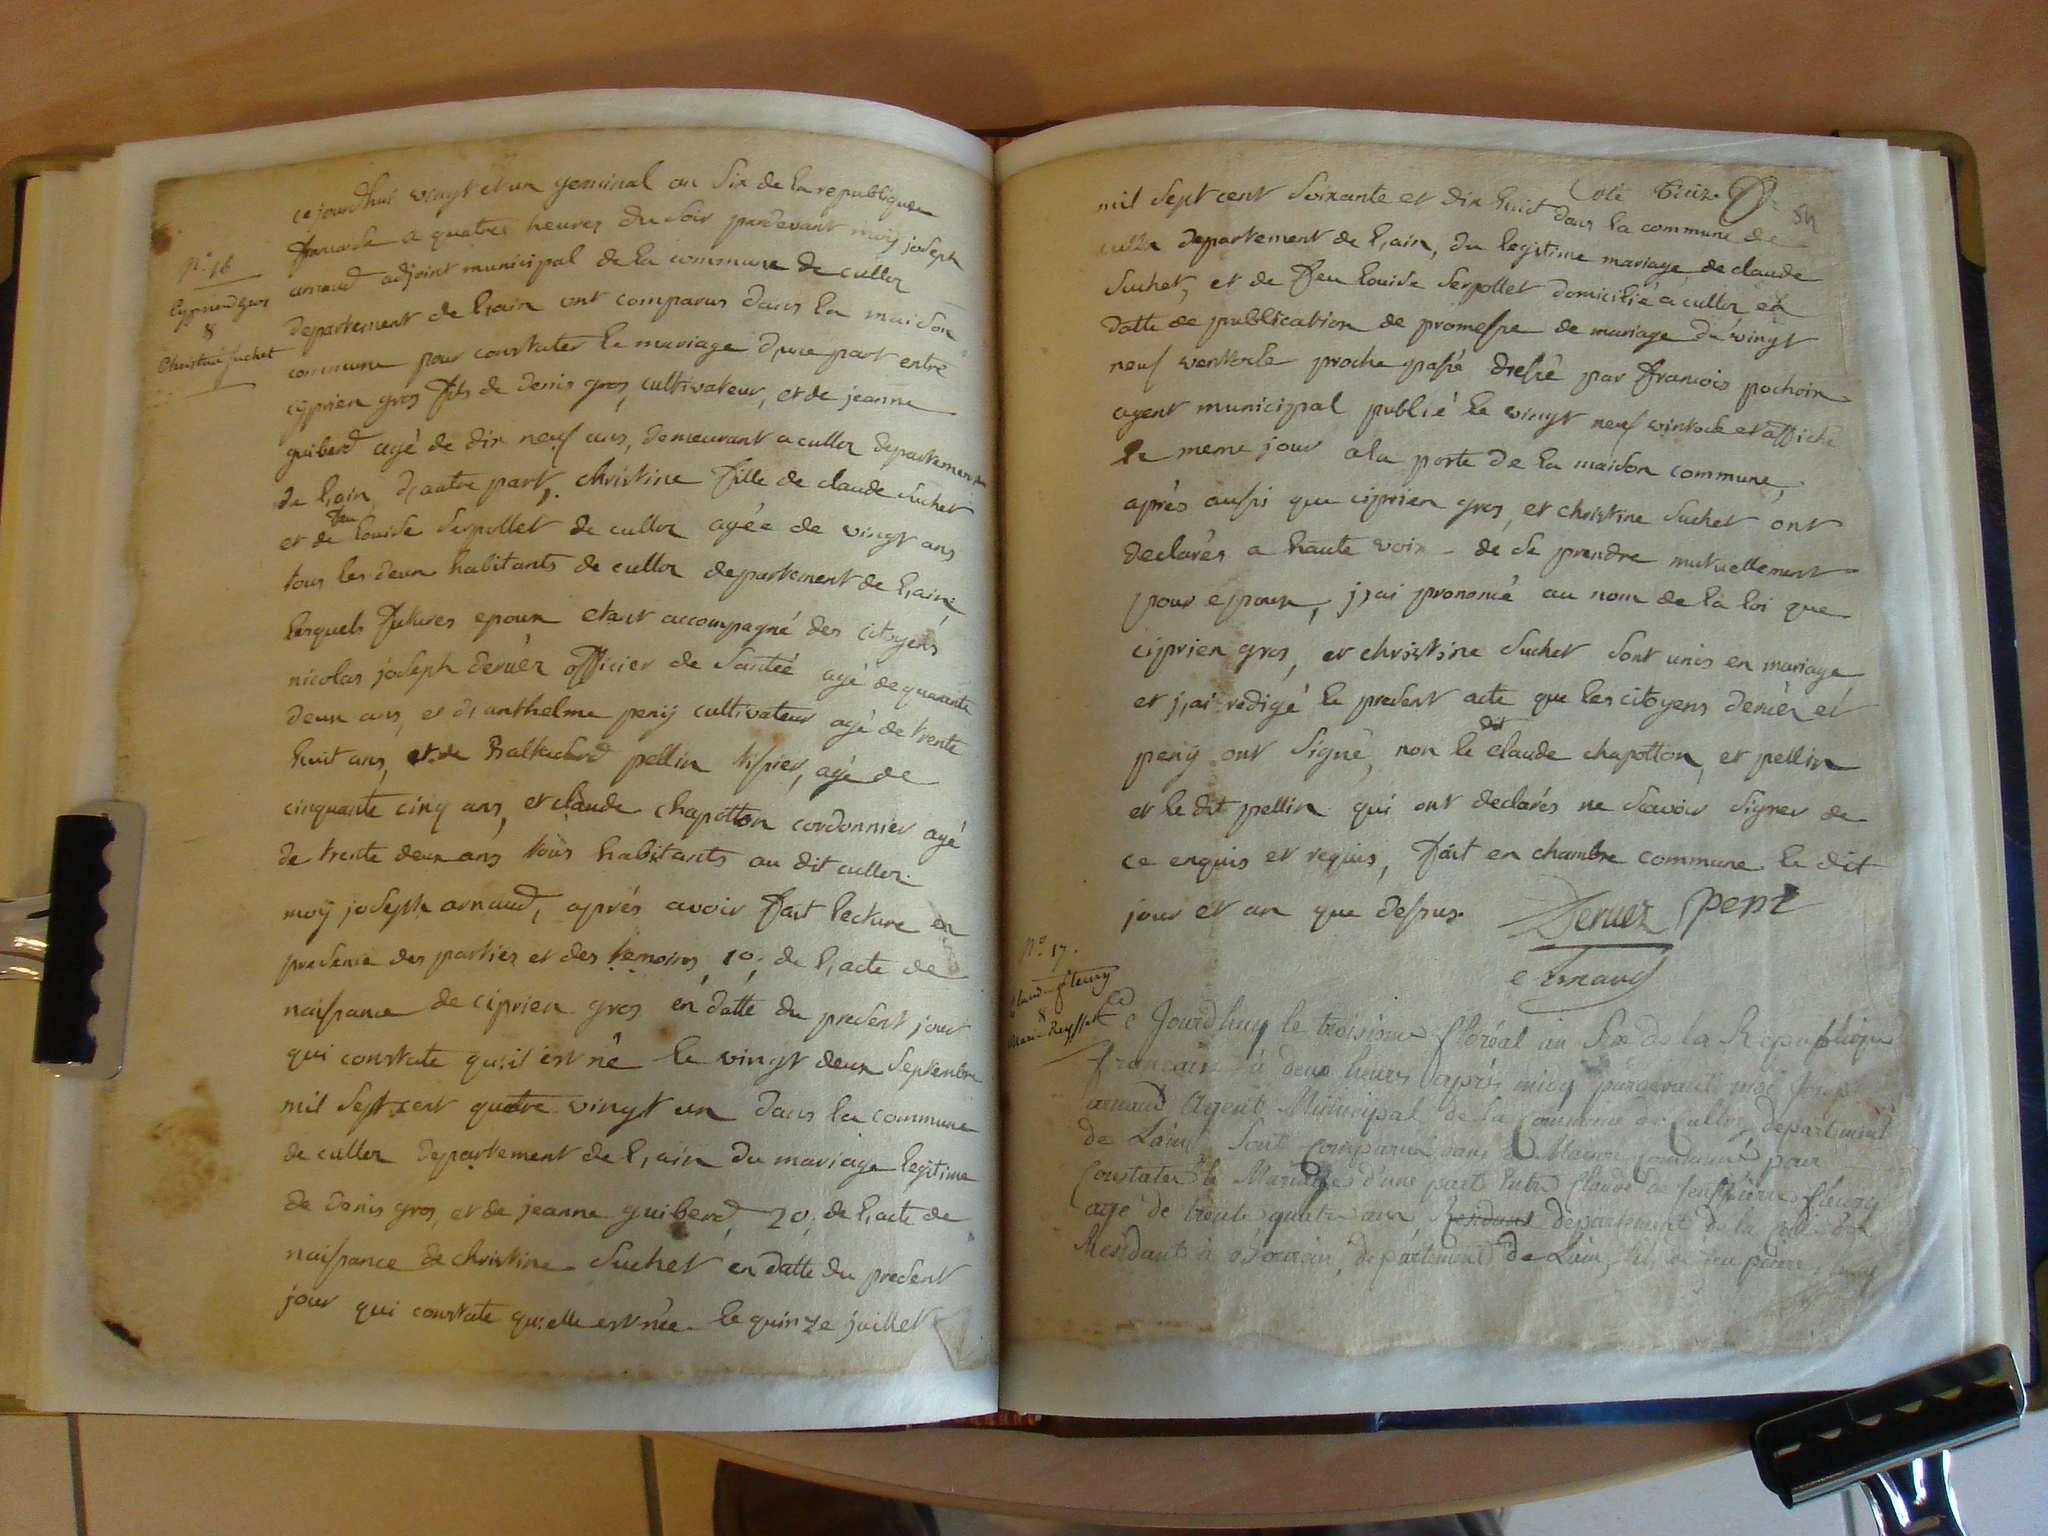 ce jourdhui vingt et un germinal an six de la republique
francaise a quatres heures du soir pardevant moÿ joseph
arnaud adjoint municipal de la commune de culloz
departement de l,ain ont comparus dans la maison
commune pour constater le mariage d,une part entre
cÿprien gros fils de denis gros, cultivateur, et de jeanne
guiberd agé de dix neuf ans, demeurant a culloz departement
de l,ain, d,autre part, christine fille de claude suchet
et de feu louise serpollet de culloz agée de vingt ans
tous les deux habitants de culloz departement de l,ain
lesquels futures epoux etant accompagné des citoyens
nicolas joseph deruéz officier de santéé agé de quarante
deux ans, et d,anthelme penÿ cultivateur agé de trente
huit ans, et de Baltazard pellin tissier, agé de
cinquante cinq ans, et claude chapotton cordonnier agé
de trente deux ans tous habitants au dit culloz
moÿ joseph arnaud, aprés avoir fait lecture en
presence des parties et des temoins, 1o; de l,acte de
naissance de ciprien gros en datte du present jour
qui constate qu;il est né le vingt deux septembre
mil sept cent quatre vingt un dans la commune
de culloz departement de l,ain du mariage legitime
de denis gros, et de jeanne guiberd, 2o; de l,acte de
naissance de christine suchet en datte du present
jour qui constate qu;elle est née le quinze juillet
N.o 16
Cyprien gros
&
Christine suchet
Coté
54
mil sept cent soixante et dix huit dans la commune de
culloz departement de l,ain, du legitime mariage de claude
suchet, et de feu louise serpollet domicilié a culloz en
datte de publication de promesse de mariage du vingt
neuf wentose proche passé dressé par francois pochoin
agent municipal publié le vingt neuf wintose et affiché
le meme jour a la porte de la maison commune,
aprés aussi que ciprien gros, et christine suchet ont
declarés a haute voix de se prendre mutuellement
pour epoux, j,ai prononcé au nom de la loi que
ciprien gros, et christine suchet sont unis en mariage
et j,ai redigé le present acte que les citoyens deruéz et
penÿ ont signé, non le dit claude chapotton, et pellin
et le dit pellin qui ont declarés ne scavoir signer de
ce enquis et requis, fait en chambre commune le dit
jour et an que dessus.
Deruez peni
arnaud
N.o 17.
Claude fleury
&
Marie Reyssert
Ce Jourdhuy le troisieme floréal an six de la Republique
francaise à deux heures aprés midy pardevant moi Joseph
arnaud Agent Municipal de la commune de Culloz departement
de Lain, sont comparus dans la Maison commune pour
Constater le Mariage d'une part entre Claude de feu pierre fleury
agé de trente quatre ans Residant departement de la
Residant à departement de Lain, fils de feu pierre